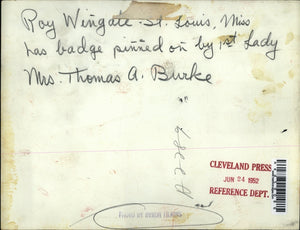 Roy Wingate - St. Louis, Miss
has badge pinned on by 1st Lady
Mrs. Thomas A. Burke
CLEVELAND PRESS
JUN 24 1952
REFERENCE DEPT.